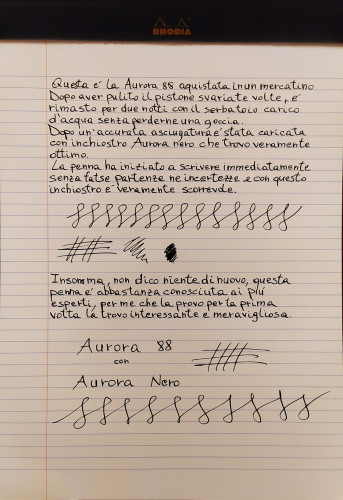 RHODIA
Questa é la Aurora 88 aquistata in un mercatino
Dopo aver pulito il pistone svariate volte, é
rimasto per due notti con il serbatoio carico
d'acqua senza perderne una goccia.
Dopo un'accurata asciugatura é stata caricata
con inchiostro Aurora nero che trovo veramente
ottimo.
La penna ha iniziato a scrivere immediatamente
senza false partenze ne incertezze e con questo
inchiostro é veramente scorrevole.
Insomma, non dico niente di nuovo, questa
penna é abbastanza conosciuta ai più
esperti, per me che la provo per la prima
volta la trovo interessante e meravigliosa.
Aurora 88
con
Aurora Nero